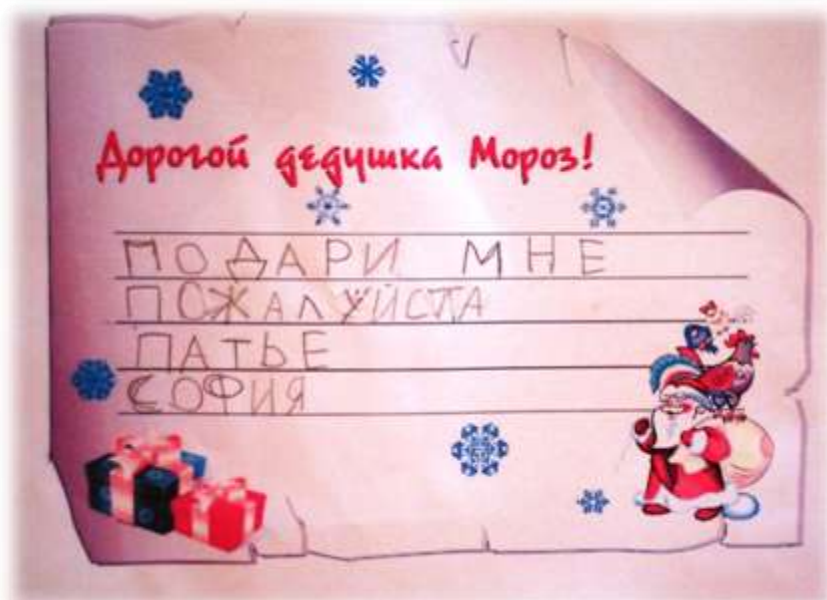 Дорогой дедушка Мороз!
ПОДАРИ МНЕ
ПОЖАЛУЙСТА
ПАТЬЕ
СОФИЯ